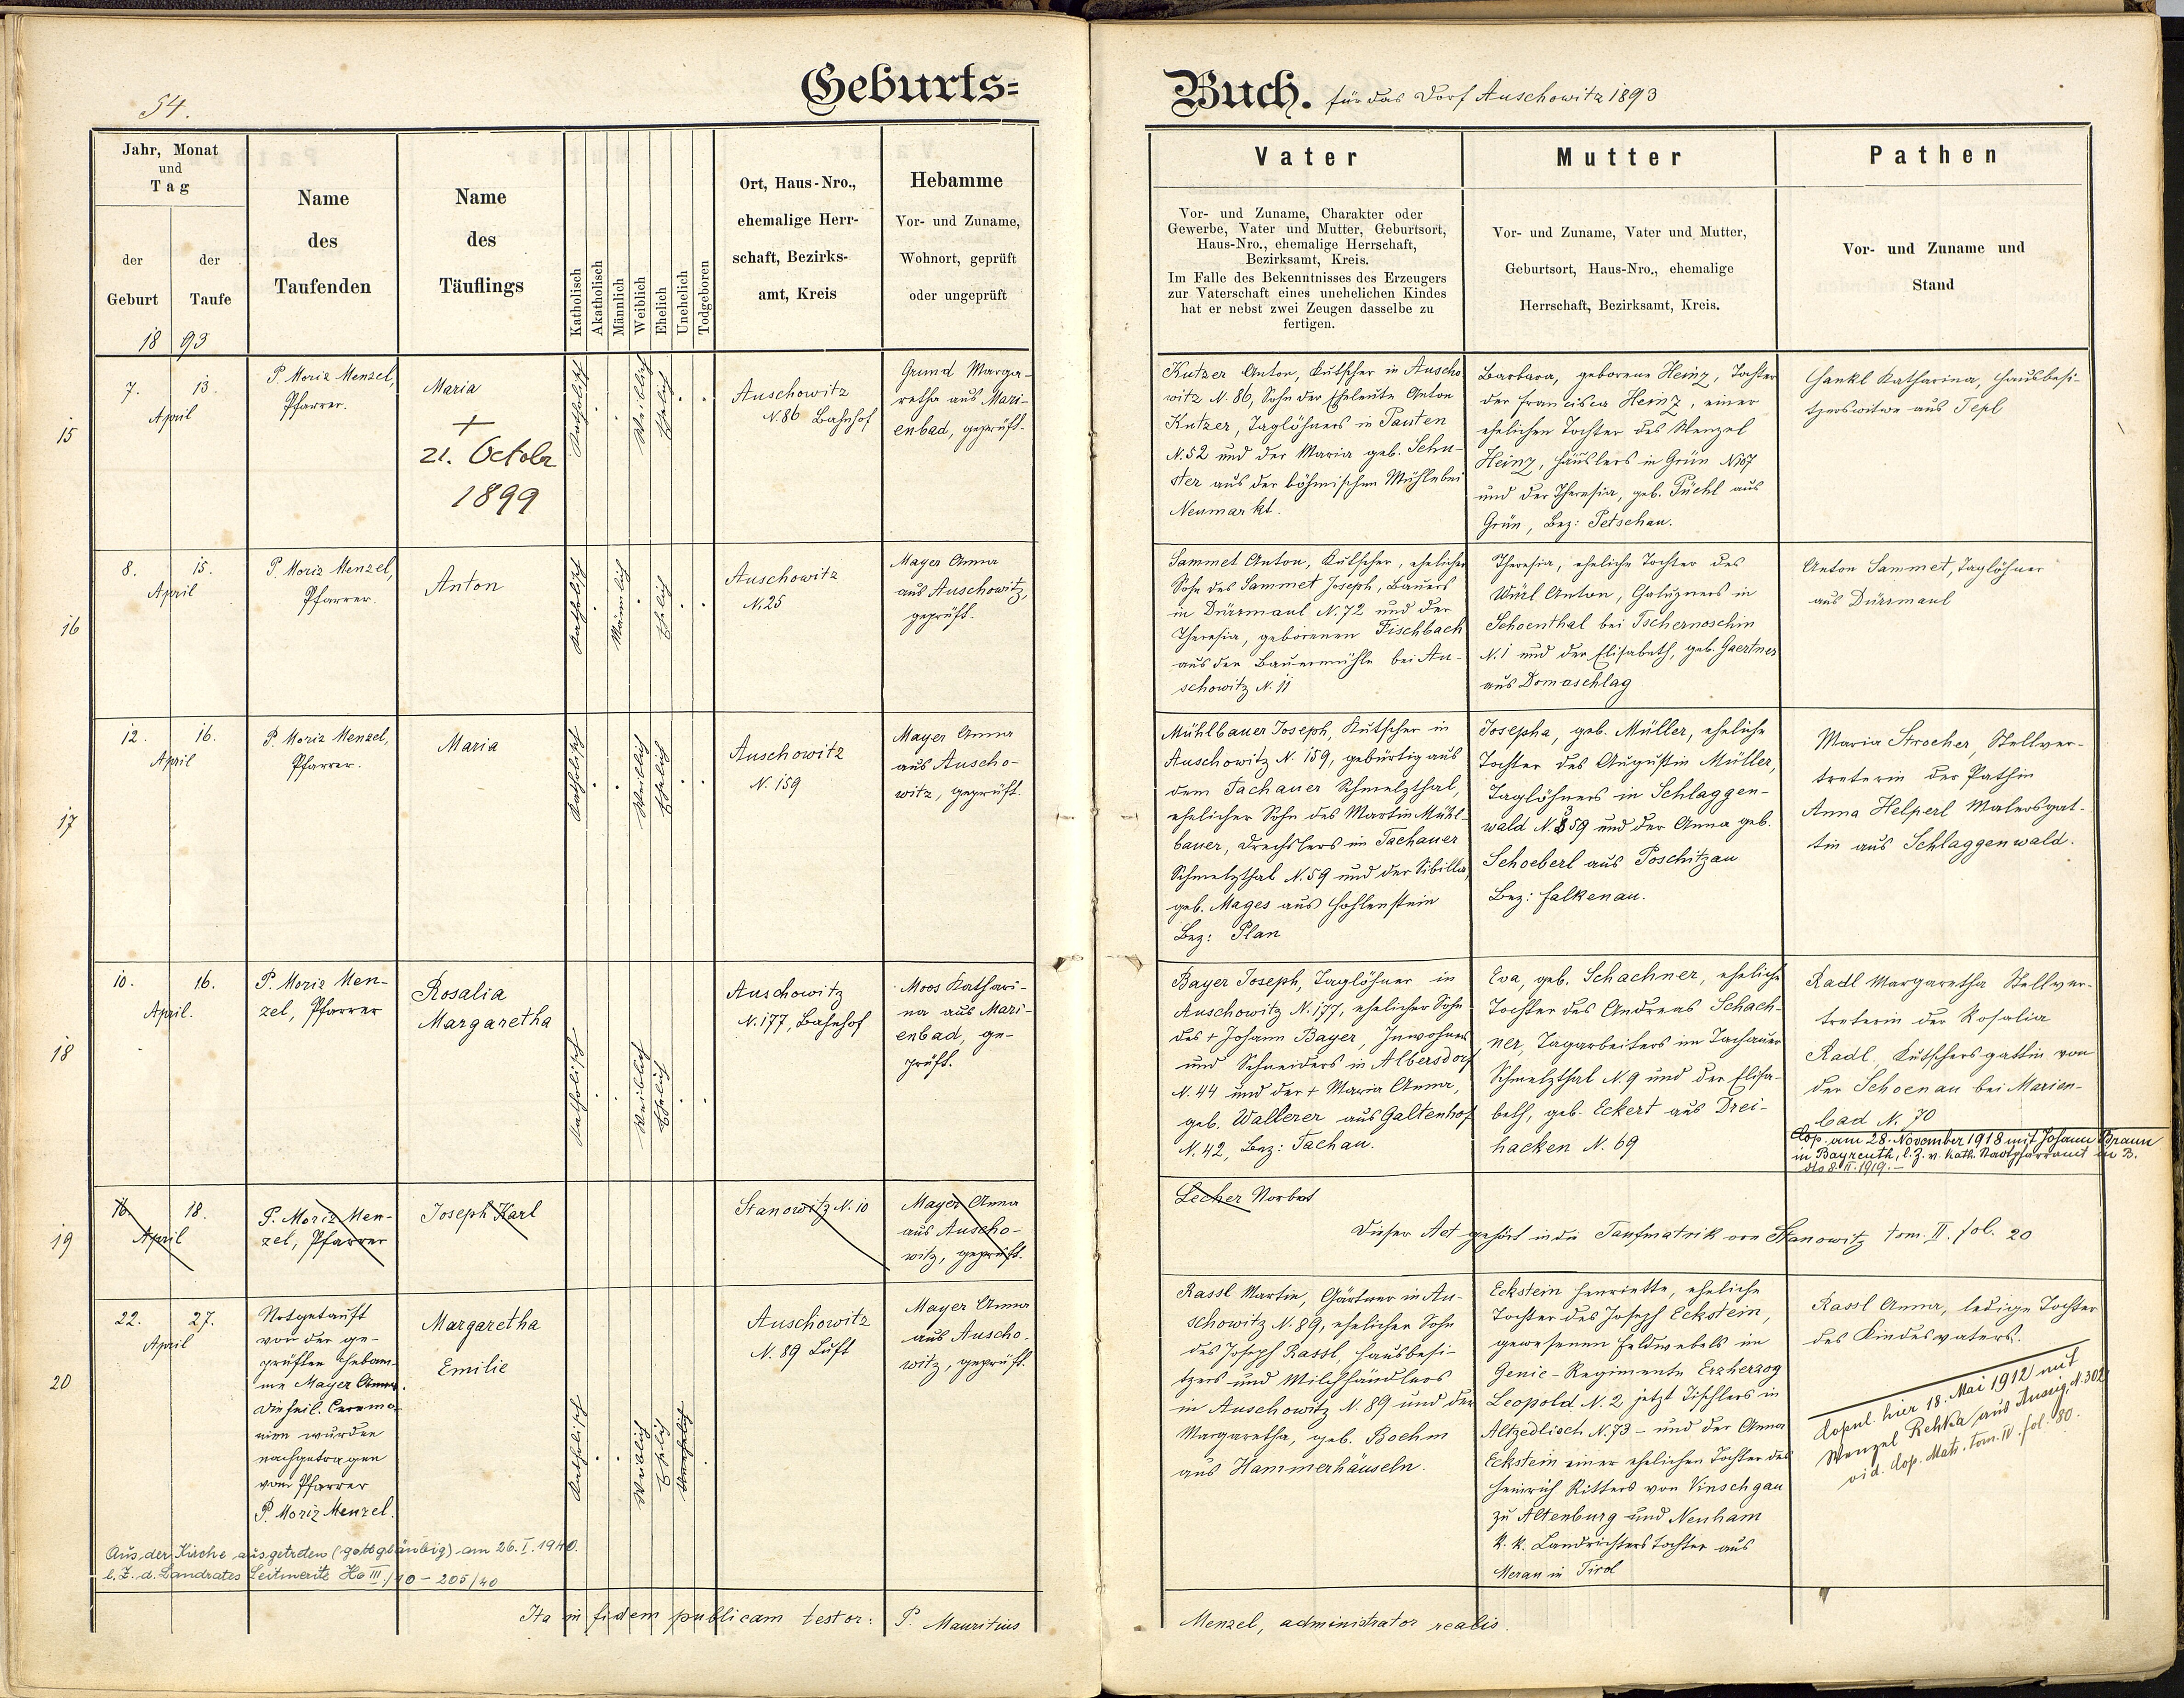 54.
Geburts=
Jahr, Monat
und
Tag
der
Geburt
der
Taufe
18 93
Name
des
Taufenden
Name
des
Täuflings
Katholisch
Akatholisch
Männlich
Weiblich
Ehelich
Unehelich
Todgeboren
Ort, Haus-Nro.,
ehemalige Herr-
schaft, Bezirks-
amt, Kreis
Hebamme
Vor- und Zuname,
Wohnort, geprüft
oder ungeprüft
15
7. 13.
April
P. Moriz Menzel,
Pfarrer.
Maria
+
21. Octobr
1899
Katholisch
Weiblich
Ehelich
Auschowitz
N. 86 Bahnhof
Grund Marga-
retha aus Mari-
enbad, geprüft.
16
8. 15.
April
P. Moriz Menzel,
Pfarrer.
Anton
Katholisch
Männlich
Ehelich
Auschowitz
N. 25
Mayer Anna
aus Auschowitz,
geprüft.
17
12. 16.
April
P. Moriz Menzel,
Pfarrer.
Maria
Katholisch
Weiblich
Ehelich
Auschowitz
N. 159
Mayer Anna
aus Auscho-
witz, geprüft.
18
10. 16.
April.
P. Moriz Men-
zel, Pfarrer
Rosalia
Margaretha
Katholisch
Weiblich
Ehelich
Auschowitz
N. 177, Bahnhof
Moos Kathari-
na aus Mari-
enbad, ge-
prüft.
19
16. 18.
April
P. Moriz Men-
zel, Pfarrer
Joseph Karl
Stanowitz N. 10
Mayer Anna
aus Auscho-
witz, geprüft.
20
22. 27.
April
Notgetauft
von der ge-
prüften Hebam-
me Mayer Anna.
Die heil. Ceremo-
nien wurden
nachgetragen
vom Pfarrer
P. Moriz Menzel.
Margaretha
Emilie
Katholisch
Weiblich
Ehelich
Unehelich
Auschowitz
N. 89 Luft
Mayer Anna
aus Auscho-
witz, geprüft.
Aus der Kirche ausgetreten (gottgläubig) am 26. I. 1940.
l. Z. d. Landrates Leitmeritz Ho III/10 - 205/40
Ita in fidem publicam testor: P. Mauritius
Buch. für das Dorf Auschowitz 1893
Vater
Vor- und Zuname, Charakter oder
Gewerbe, Vater und Mutter, Geburtsort,
Haus-Nro., ehemalige Herrschaft,
Bezirksamt, Kreis.
Im Falle des Bekenntnisses des Erzeugers
zur Vaterschaft eines unehelichen Kindes
hat er nebst zwei Zeugen dasselbe zu
fertigen.
Mutter
Vor- und Zuname, Vater und Mutter,
Geburtsort, Haus-Nro., ehemalige
Herrschaft, Bezirksamt, Kreis.
Pathen
Vor- und Zuname und
Stand
Kutzer Anton, Kutscher in Auscho-
witz N. 86, Sohn der Eheleute Anton
Kutzer, Taglöhners in Pausten
N. 52 und der Maria geb. Schu-
ster aus der böhmischen Mühle bei
Neumarkt.
Barbara, geborene Heinz, Tochter
der Francisca Heinz, einer
ehelichen Tochter des Wenzel
Heinz, Häuslers in Grün N. 67
und der Theresia, geb. Püchl aus
Grün, Bez: Petschau.
Hankl Katharina, Hausbesi-
tzerswitwe aus Tepl
Sammet Anton, Kutscher, ehelicher
Sohn des Sammet Joseph, Bauers
in Dürrmaul N. 72 und der
Theresia, geborenen Fischbach
aus der Bauermühle bei Au-
schowitz N. 11
Theresia, eheliche Tochter des
Würl Anton, in
Schoenthal bei Tschernoschin
N. 1 und der Elisabeth, geb. Gaertner
aus Domaschlag
Anton Sammet, Taglöhner
aus Dürrmaul
Mühlbauer Joseph, Kutscher in
Auschowitz N. 159, gebürtig aus
dem Tachauer Schmelzthal,
ehelicher Sohn des Martin Mühl-
bauer, Drechslers im Tachauer
Schmelzthal N. 59 und der Sibilla,
geb. Mages aus Hohlenstein
Bez: Plan
Josepha, geb. Müller, eheliche
Tochter des Augustin Müller,
Taglöhners in Schlaggen-
wald N. 359 und der Anna geb.
Schoeberl aus Poschitzau
Bez: Falkenau.
Maria Strocher, Stellver-
treterin der Pathin
Anna Helperl Malersgat-
tin aus Schlaggenwald.
Bayer Joseph, Taglöhner in
Auschowitz N. 177, ehelicher Sohn
des + Johann Bayer, Inwohners
und Schneiders in Albersdorf
N. 44 und der + Maria Anna,
geb. Wallerer aus Galtenhof
N. 42, Bez: Tachau.
Eva, geb. Schachner, eheliche
Tochter des Andreas Schach-
ner, Tagarbeiters im Tachauer
Schmelzthal N. 9 und der Elisa-
beth, geb. Eckert aus Drei-
hacken N. 69
Radl Margaretha Stellver-
treterin der Rosalia
Radl, Kutschersgattin von
der Schoenau bei Marien-
bad N. 70
Cop. am 28. November 1918 mit Johann Braun
in Bayreuth, l. Z. v. Kath. Stadtpfarramt in B.
dto 8. II. 1919.-
Lecher Norbert
Dieser Act gehört in die Taufmatrik von Stanowitz tom. II. fol. 20
Rassl Martin, Gärtner in Au-
schowitz N. 89, ehelicher Sohn
des Joseph Rassl, Hausbesi-
tzers und Milchhändlers
in Auschowitz N. 89 und der
Margaretha, geb. Boehm
aus Hammerhäuseln.
Eckstein Henriette, eheliche
Tochter des Joseph Eckstein,
gewesenen Feldwebels im
Genie-Regimente Erzherzog
Leopold N. 2 jetzt Tischlers in
Altzedlisch N. 73 - und der Anna
Eckstein einer ehelichen Tochter des
Heinrich Ritters von Vinschgau
zu Altenburg und Neuham
k. k. Landrichters Tochter aus
Meran in Tirol
Rassl Anna, ledige Tochter
des Kindesvaters.
Copul. hier 18. Mai 1912 mit
Wenzel Rehka aus Aussig, N. 302
vid. Cop. Matr. tom. IV. fol. 80.
Menzel, administrator realis.